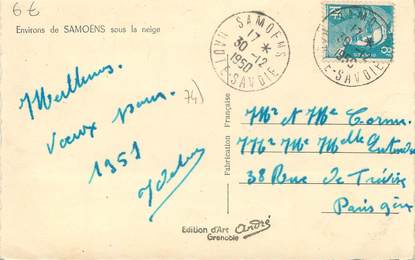 6 €
Environs de SAMOËNS sous la neige
SAMOENS
17 *
30 -12
1950
HAUTE-SAVOIE
8F
74)
Meilleurs
Vœux pour
1951
Fabrication Française
Mr et Me
Mr Me Melle
38 Rue de Trévise
Paris 9ème
Edition d'Art André
Grenoble